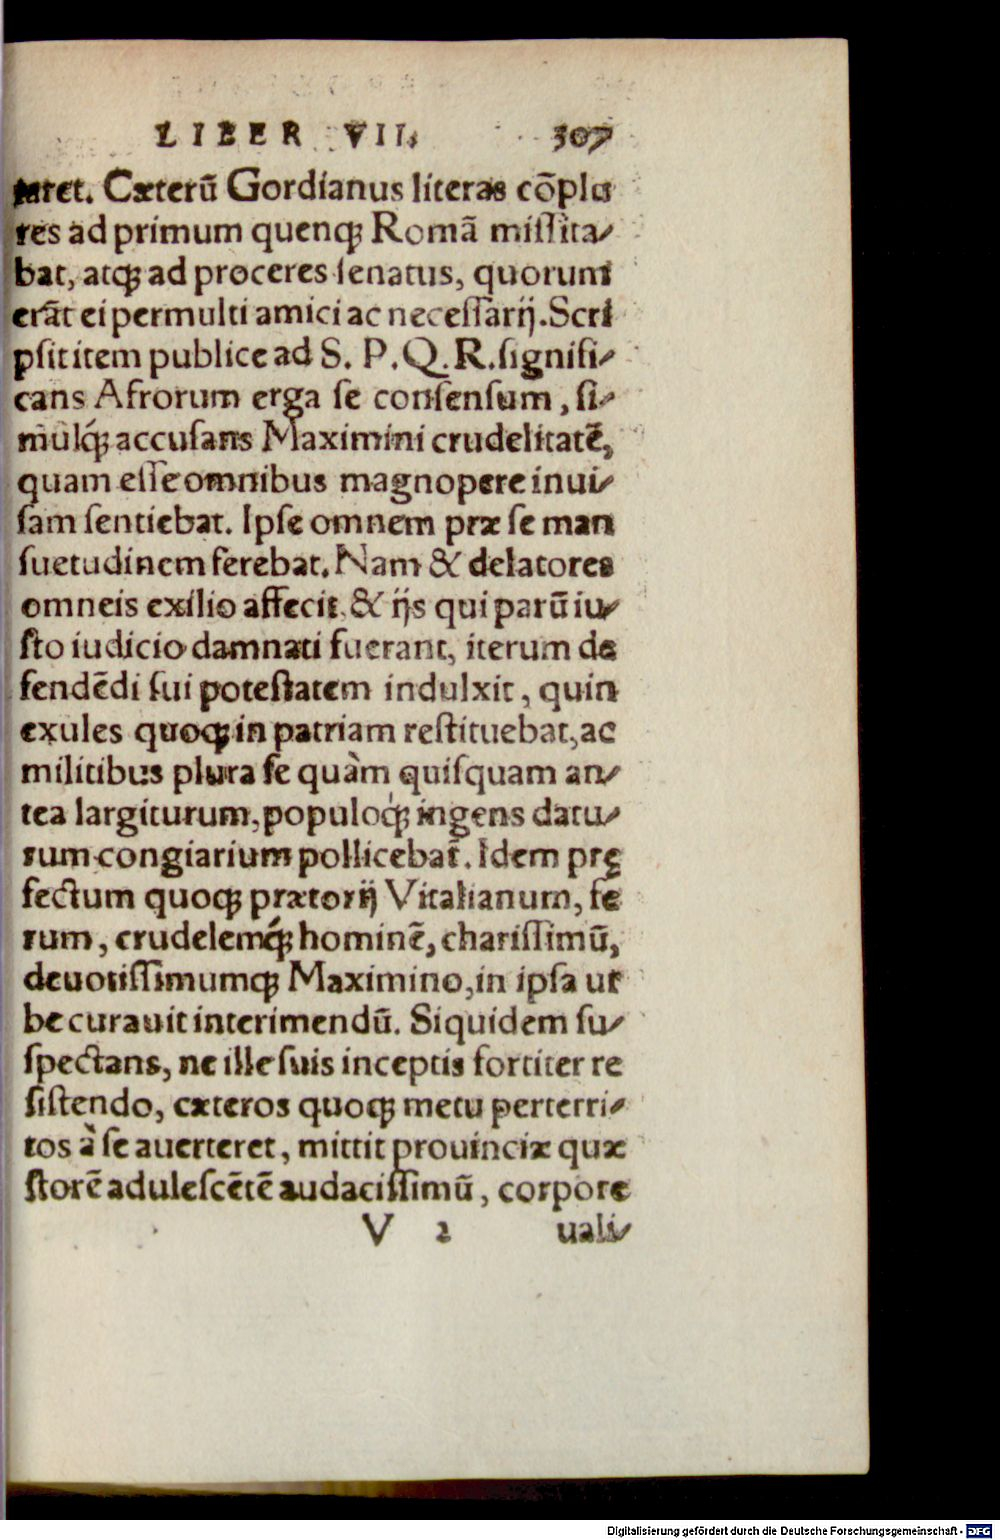 LIBER VII. 307
taret. Cæterũ Gordianus literas cõplu
res ad primum quenqꝫ Romã miſſita⸗
bat, atqꝫ ad proceres ſenatus, quorum
erãt ei permulti amici ac neceſſarij. Scri
pſit item publice ad S. P. Q. R. ſignifi⸗
cans Afrorum erga ſe conſenſum, ſi⸗
mulq́ꝫ accuſans Maximini crudelitatẽ,
quam eſſe omnibus magnopere inui⸗
ſam ſentiebat. Ipſe omnem præ ſe man
ſuetudinem ferebat. Nam & delatores
omneis exilio affecit, & ijs qui parũ iu⸗
ſto iudicio damnati fuerant, iterum de
fendẽdi ſui poteſtatem indulxit, quin
exules quoqꝫ in patriam reſtituebat, ac
militibus plura ſe quàm quiſquam an⸗
tea largiturum, populoq́ꝫ ingens datu⸗
rum congiarium pollicebat̃. Idem prę
fectum quoqꝫ prætorij Vitalianum, fe
rum, crudelemq́ꝫ hominẽ, chariſſimũ,
deuotiſſimumqꝫ Maximino, in ipſa ur
be curauit interimendũ. Siquidem ſu⸗
ſpectans, ne ille ſuis inceptis fortiter re
ſiſtendo, cæteros quoqꝫ metu perterri⸗
tos à ſe auerteret, mittit prouinciæ quæ
ſtorẽ aduleſcẽtẽ audaciſſimũ, corpore
V 2 uali⸗
Digitalisierung gefördert durch die Deutsche Forschungsgemeinschaft - DFG